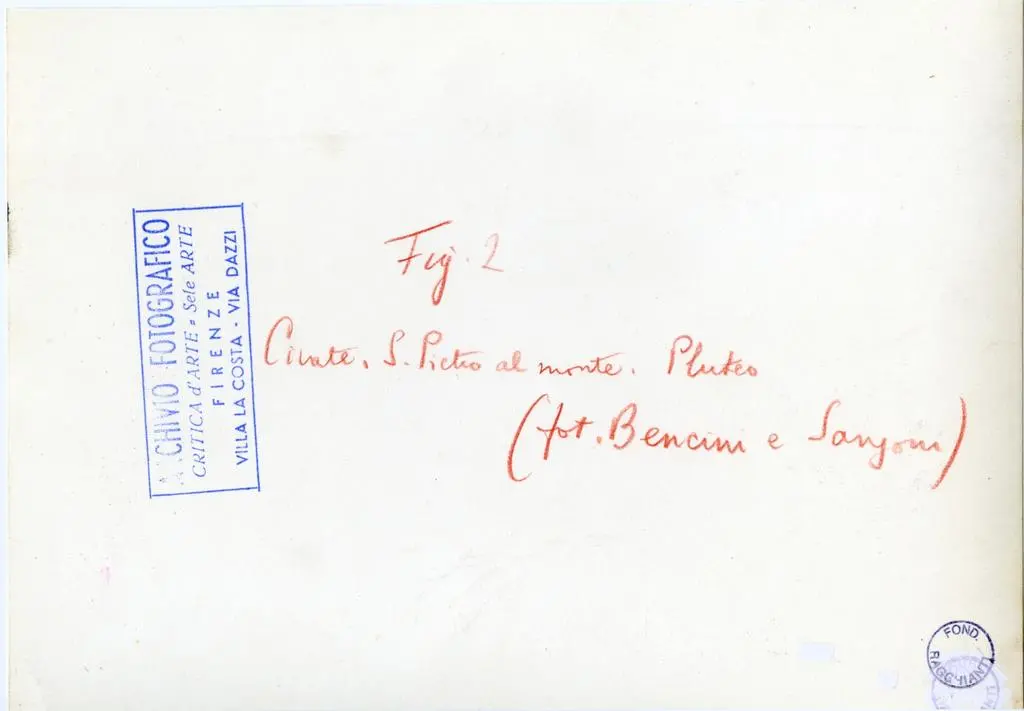 ARCHIVIO FOTOGRAFICO
CRITICA d'ARTE = Sele ARTE
FIRENZE
VILLA LA COSTA - VIA DAZZI
Fig. 2
Civate. S. Pietro al monte. Pluteo
(fot. Bencini e Sansoni)
FOND.
RAGGHIANTI